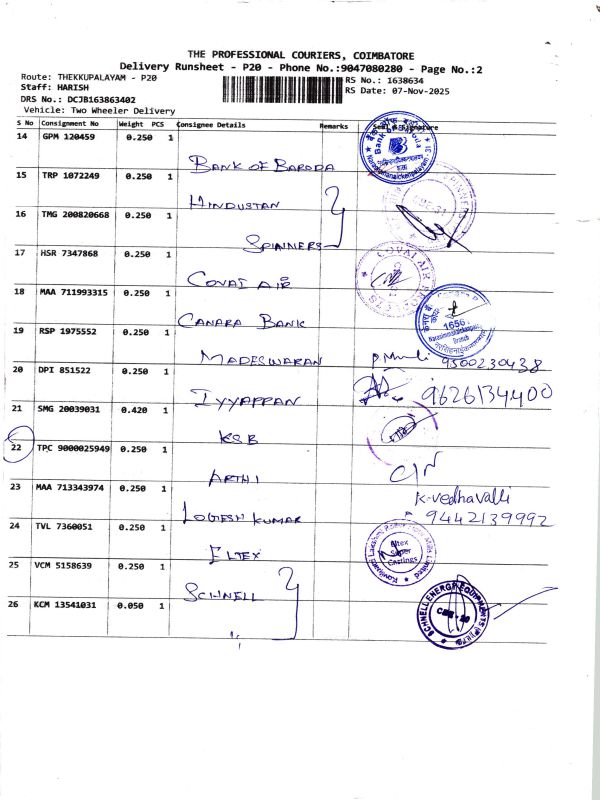 THE PROFESSIONAL COURIERS, COIMBATORE
Delivery Runsheet - P20 - Phone No.:9047080280 - Page No.:2
Route: THEKKUPALAYAM - P20
RS No.: 1638634
Staff: HARISH
RS Date: 07-Nov-2025
DRS No.: DCJB163863402
Vehicle: Two Wheeler Delivery
S No Consignment No Weight PCS Consignee Details Remarks Seal & Signature
14 GPM 120459 0.250 1
BANK OF BARODA
Bank of Baroda
15 TRP 1072249 0.250 1
HINDUSTAN
16 TMG 200820668 0.250 1
SPINNERS
17 HSR 7347868 0.250 1
COVAI AIR
COVAI AIR
18 MAA 711993315 0.250 1
CANARA BANK
1656
Branch
19 RSP 1975552 0.250 1
MADESWARAN
9500230438
20 DPI 851522 0.250 1
IYYAPPAN
9626134400
21 SMG 20039031 0.420 1
KSB
22 TPC 9000025949 0.250 1
ARTHI
23 MAA 713343974 0.250 1
LOGESH KUMAR
K-vedhavalli
9442139992
24 TVL 7360051 0.250 1
ELTEX
Eltex
Super
Castings
25 VCM 5158639 0.250 1
SCHNELL
26 KCM 13541031 0.050 1
SCHNELL ENERGY EQUIPMENTS (P) LTD